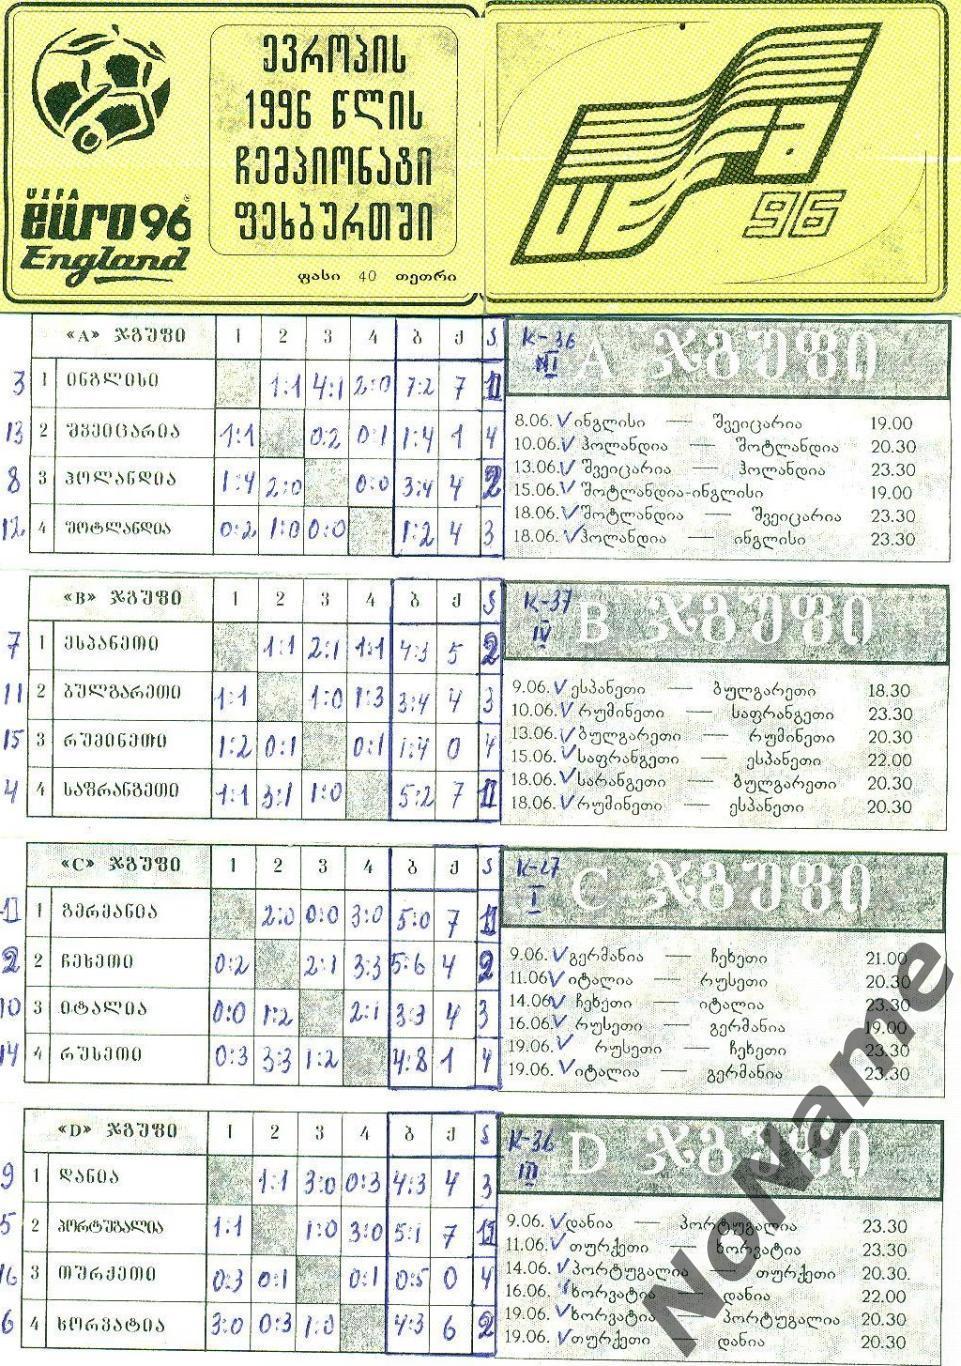 ევროპის
1996 წლის
ჩემპიონატი
ფეხბურთში
UEFA
EURO96
England
ფასი 40 თეთრი
UEFA
96
«A» ჯგუფი 1 2 3 4 ბ ქ
3 1 ინგლისი 1:1 4:1 2:0 7:2 7 I
13 2 შვეიცარია 1:1 0:2 0:1 1:4 1 4
8 3 ჰოლანდია 1:4 2:0 0:0 3:4 4 2
12 4 შოტლანდია 0:2 1:0 0:0 1:2 4 3
K-36
A ჯგუფი
8.06. ინგლისი — შვეიცარია 19.00
10.06. ჰოლანდია — შოტლანდია 20.30
13.06. შვეიცარია — ჰოლანდია 23.30
15.06. შოტლანდია-ინგლისი 19.00
18.06. შოტლანდია — შვეიცარია 23.30
18.06. ჰოლანდია — ინგლისი 23.30
«B» ჯგუფი 1 2 3 4 ბ ქ
7 1 ესპანეთი 1:1 2:1 1:1 4:3 5 2
11 2 ბულგარეთი 1:1 1:0 1:3 3:4 4 3
15 3 რუმინეთი 1:2 0:1 0:1 1:4 0 4
4 4 საფრანგეთი 1:1 3:1 1:0 5:2 7 I
K-37
IV
B ჯგუფი
9.06. ესპანეთი — ბულგარეთი 18.30
10.06. რუმინეთი — საფრანგეთი 23.30
13.06. ბულგარეთი — რუმინეთი 20.30
15.06. საფრანგეთი — ესპანეთი 22.00
18.06. სარანგეთი — ბულგარეთი 20.30
18.06. რუმინეთი — ესპანეთი 20.30
«C» ჯგუფი 1 2 3 4 ბ ქ
I 1 გერმანია 2:0 0:0 3:0 5:0 7 I
2 2 ჩეხეთი 0:2 2:1 3:3 5:6 4 2
10 3 იტალია 0:0 1:2 2:1 3:3 4 3
14 4 რუსეთი 0:3 3:3 1:2 4:8 1 4
K-27
I
C ჯგუფი
9.06. გერმანია — ჩეხეთი 21.00
11.06 იტალია — რუსეთი 20.30
14.06 ჩეხეთი — იტალია 23.30
16.06 რუსეთი — გერმანია 19.00
19.06. რუსეთი — ჩეხეთი 23.30
19.06. იტალია — გერმანია 23.30
«D» ჯგუფი 1 2 3 4 ბ ქ
9 1 დანია 1:1 3:0 0:3 4:3 4 3
5 2 პორტუგალია 1:1 1:0 3:0 5:1 7 I
16 3 თურქეთი 0:3 0:1 0:1 0:5 0 4
6 4 ხორვატია 3:0 0:3 1:0 4:3 6 2
K-36
III
D ჯგუფი
9.06. დანია — პორტუგალია 23.30
11.06. თურქეთი — ხორვატია 23.30
14.06. პორტუგალია — თურქეთი 20.30.
16.06. ხორვატია — დანია 22.00
19.06. ხორვატია — პორტუგალია 20.30
19.06. თურქეთი — დანია 20.30
NoName